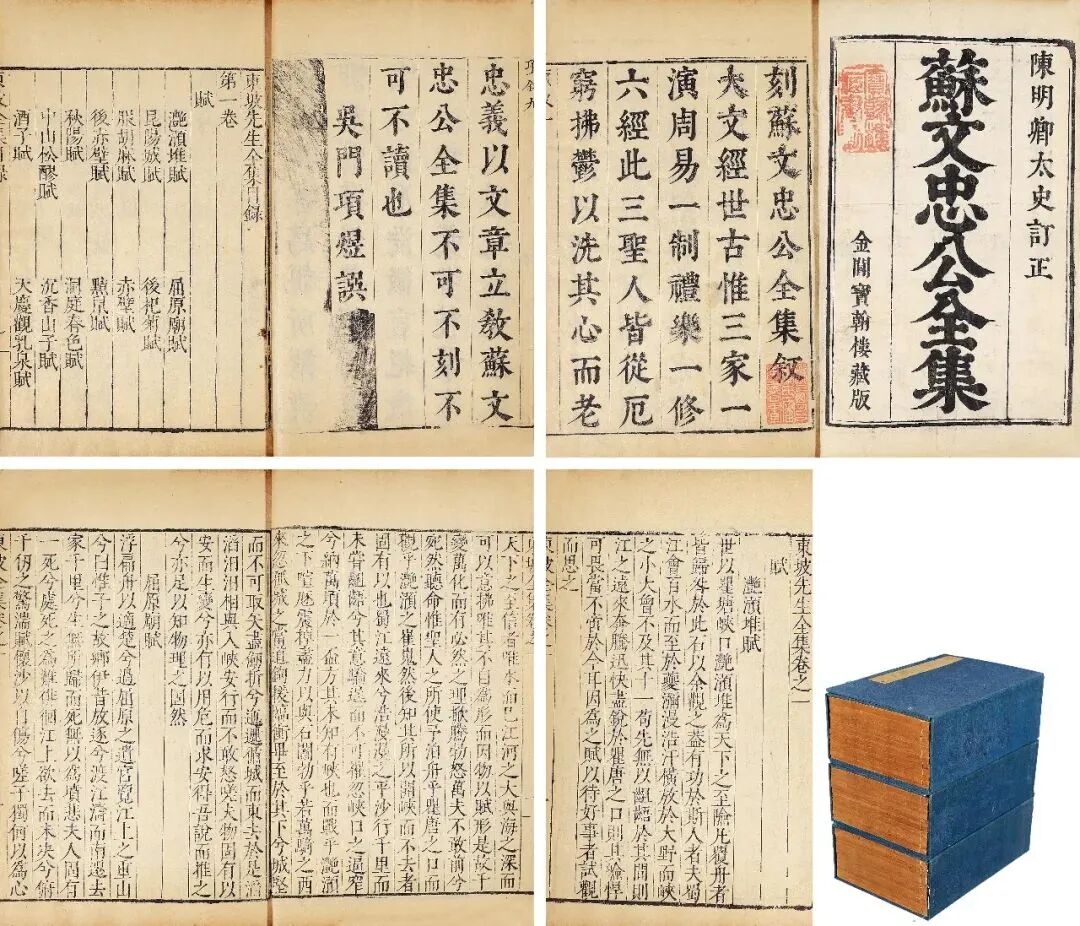 陳明卿太史訂正
蘇文忠公全集
金閶寶翰樓藏版
刻蘇文忠公全集叙
夫文經世古惟三家一
演周易一制禮樂一修
六經此三聖人皆從厄
窮拂鬱以洗其心而老
忠義以文章立教蘇文
忠公全集不可不刻不
可不讀也
吳門項煜譔
東坡先生全集目録
第一卷
賦
灩澦堆賦 屈原廟賦
昆陽城賦 後杞菊賦
服胡麻賦 赤壁賦
後赤壁賦 黠鼠賦
秋陽賦 洞庭春色賦
中山松醪賦 沉香山子賦
酒子賦 天慶觀乳泉賦
東坡先生全集卷之一
賦
灩澦堆賦
世以瞿塘峽口灩澦堆為天下之至險凡覆舟者
皆歸咎於此石以余觀之葢有功於斯人者夫蜀
江會百水而至於夔瀰漫浩汗橫放於大野而峽
之小大曾不及其十一苟先無以齟齬於其間則
江之遠來奔騰迅快盡銳於瞿唐之口則其嶮悍
可畏當不啻於今耳因為之賦以待好事者試觀
而思之
天下之至信者惟水而已江河之大與海之深而
可以意揣唯其不自為形而因物以賦形是故千
變萬化而有必然之理掀騰勃怒萬夫不敢前兮
宛然聽命惟聖人之所使予泊舟乎瞿唐之口而
觀乎灩澦之崔嵬然後知其所以開峽而不去者
固有以也蜀江遠來兮浩漫漫之平沙行千里而
未嘗齟齬兮其意驕逞而不可摧忽峽口之逼窄
兮納萬頃於一盃方其未知有峽也而戰乎灩澦
之下喧豗震掉盡力以與石鬭勃乎若萬騎之西
來忽孤城之當道鉤援臨衝畢至於其下兮城堅
而不可取矢盡劒折兮迤邐循城而東去於是滔
滔汩汩相與入峽安行而不敢怒嗟夫物固有以
安而生變兮亦有以用危而求安得吾說而推之
兮亦足以知物理之固然
屈原廟賦
浮扁舟以適楚兮過屈原之遺宮覽江上之重山
兮曰惟子之故鄉伊昔放逐兮渡江濤而南遷去
家千里兮生無所歸而死無以為墳悲夫人固有
一死兮處死之為難徘徊江上欲去而未決兮俯
千仞之驚湍賦懷沙以自傷兮嗟子獨何以為心